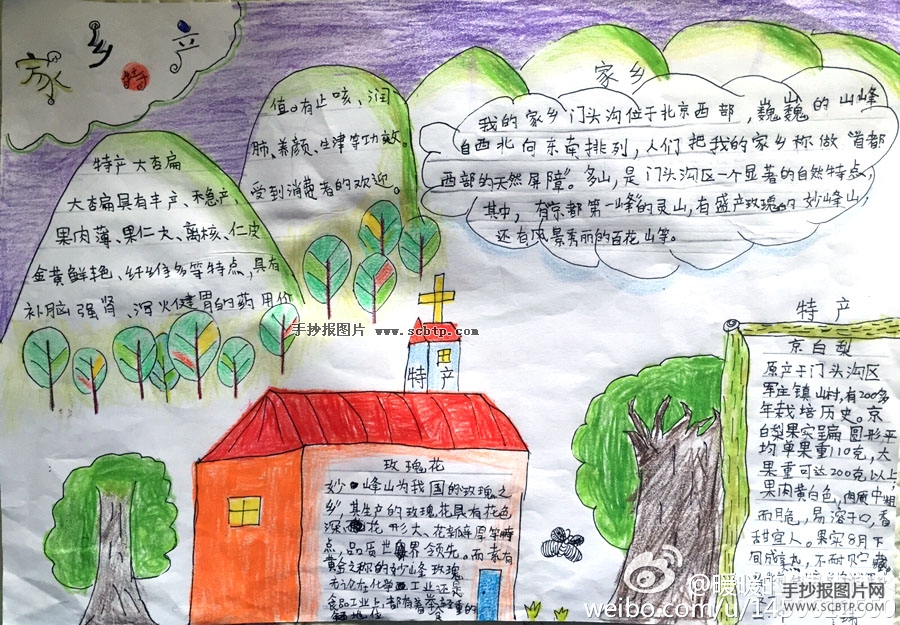 家乡特产
家乡
我的家乡门头沟位于北京西部，巍巍的山峰
自西北向东南排列，人们把我的家乡称做“首都
西部的天然屏障”。多山，是门头沟区一个显著的自然特点，
其中，有京都第一峰的灵山，有盛产玫瑰的妙峰山，
还有风景秀丽的百花山等。
特产 大杏扁
大杏扁具有丰产、不急产、
果肉薄、果仁大、离核、仁皮
金黄鲜艳、纤维多等特点，具有
补脑强肾、泻火健胃的药用价
值。有止咳、润
肺、养颜、生津等功效
受到消费者的欢迎。
手抄报图片 www.scbtp.com
特产
玫瑰花
妙峰山为我国的玫瑰之
乡，其生产的玫瑰花具有花色
深、花形大、花瓣厚等特
点，品质世界领先。而素有
黄金之称的妙峰玫瑰
无论在化学工业还是
食品工业上，都有着举足轻重的
地位
特产
京白梨
原产于门头沟区
军庄镇山村，有200多
年栽培历史。京
白梨果实呈扁圆形平
均单果重110克，大
果重可达200克以上，
果肉黄白色，肉质中粗
而脆，易溶于口，香
甜宜人。果实8月下
间成熟，不耐贮藏
@暖暖
weibo.com/u/14
手抄报图片网
WWW.SCBTP.COM